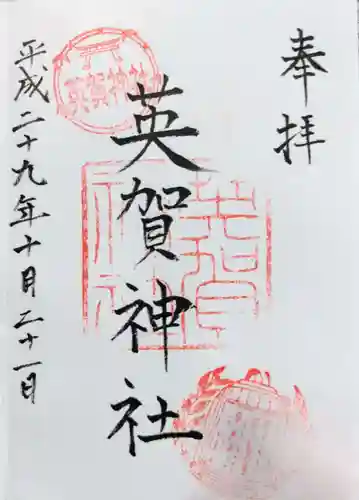 奉拝
英賀神社
平成二十九年十月二十一日
英賀神社